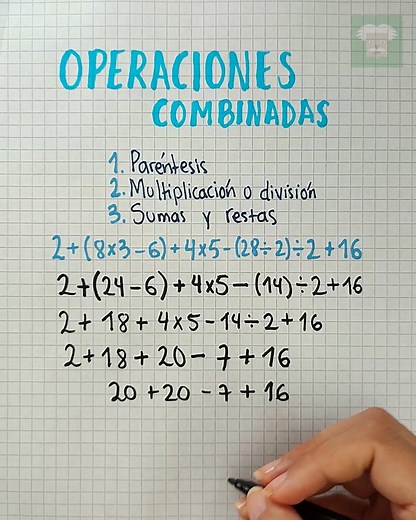 OPERACIONES
COMBINADAS
1. Paréntesis
2. Multiplicación o división
3. Sumas y restas
2+(8×3-6)+4×5-(28÷2)÷2+16
2+(24-6)+4×5-(14)÷2+16
2+18+4×5-14÷2+16
2+18+20-7+16
20+20-7+16